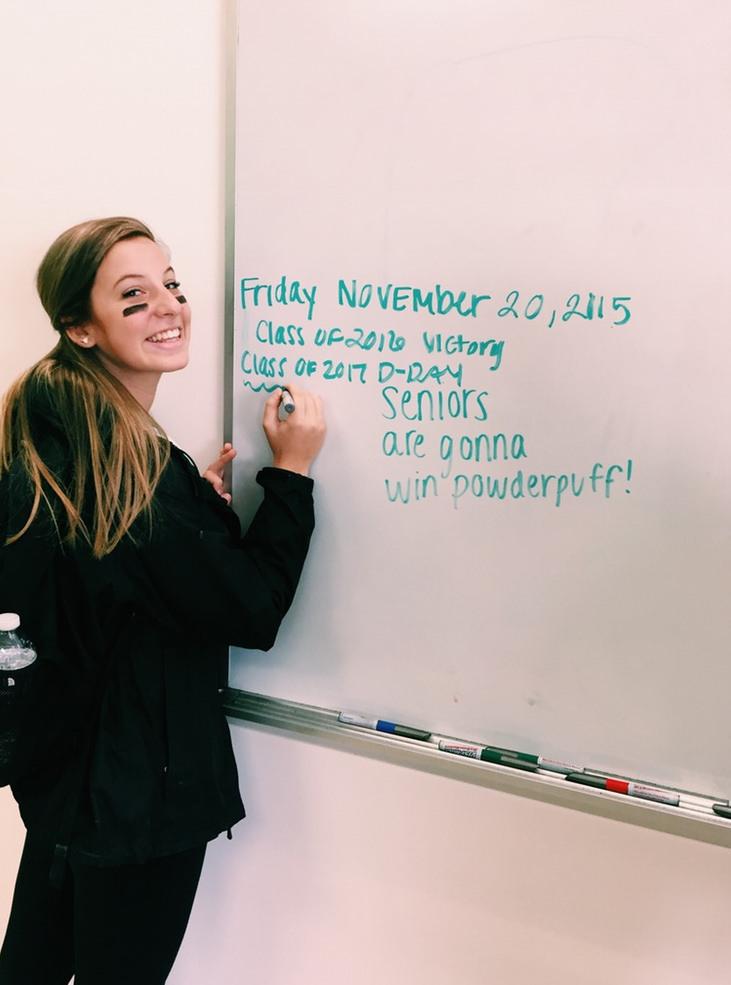 Friday NOVEMber 20, 2115
Class OF 2016 VICtory
Class OF 2017 D-DAY
Seniors
are gonna
win powderpuff!